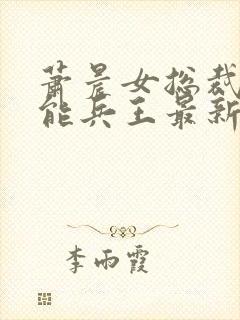 萧晨女总裁
能兵王最新
李雨霞